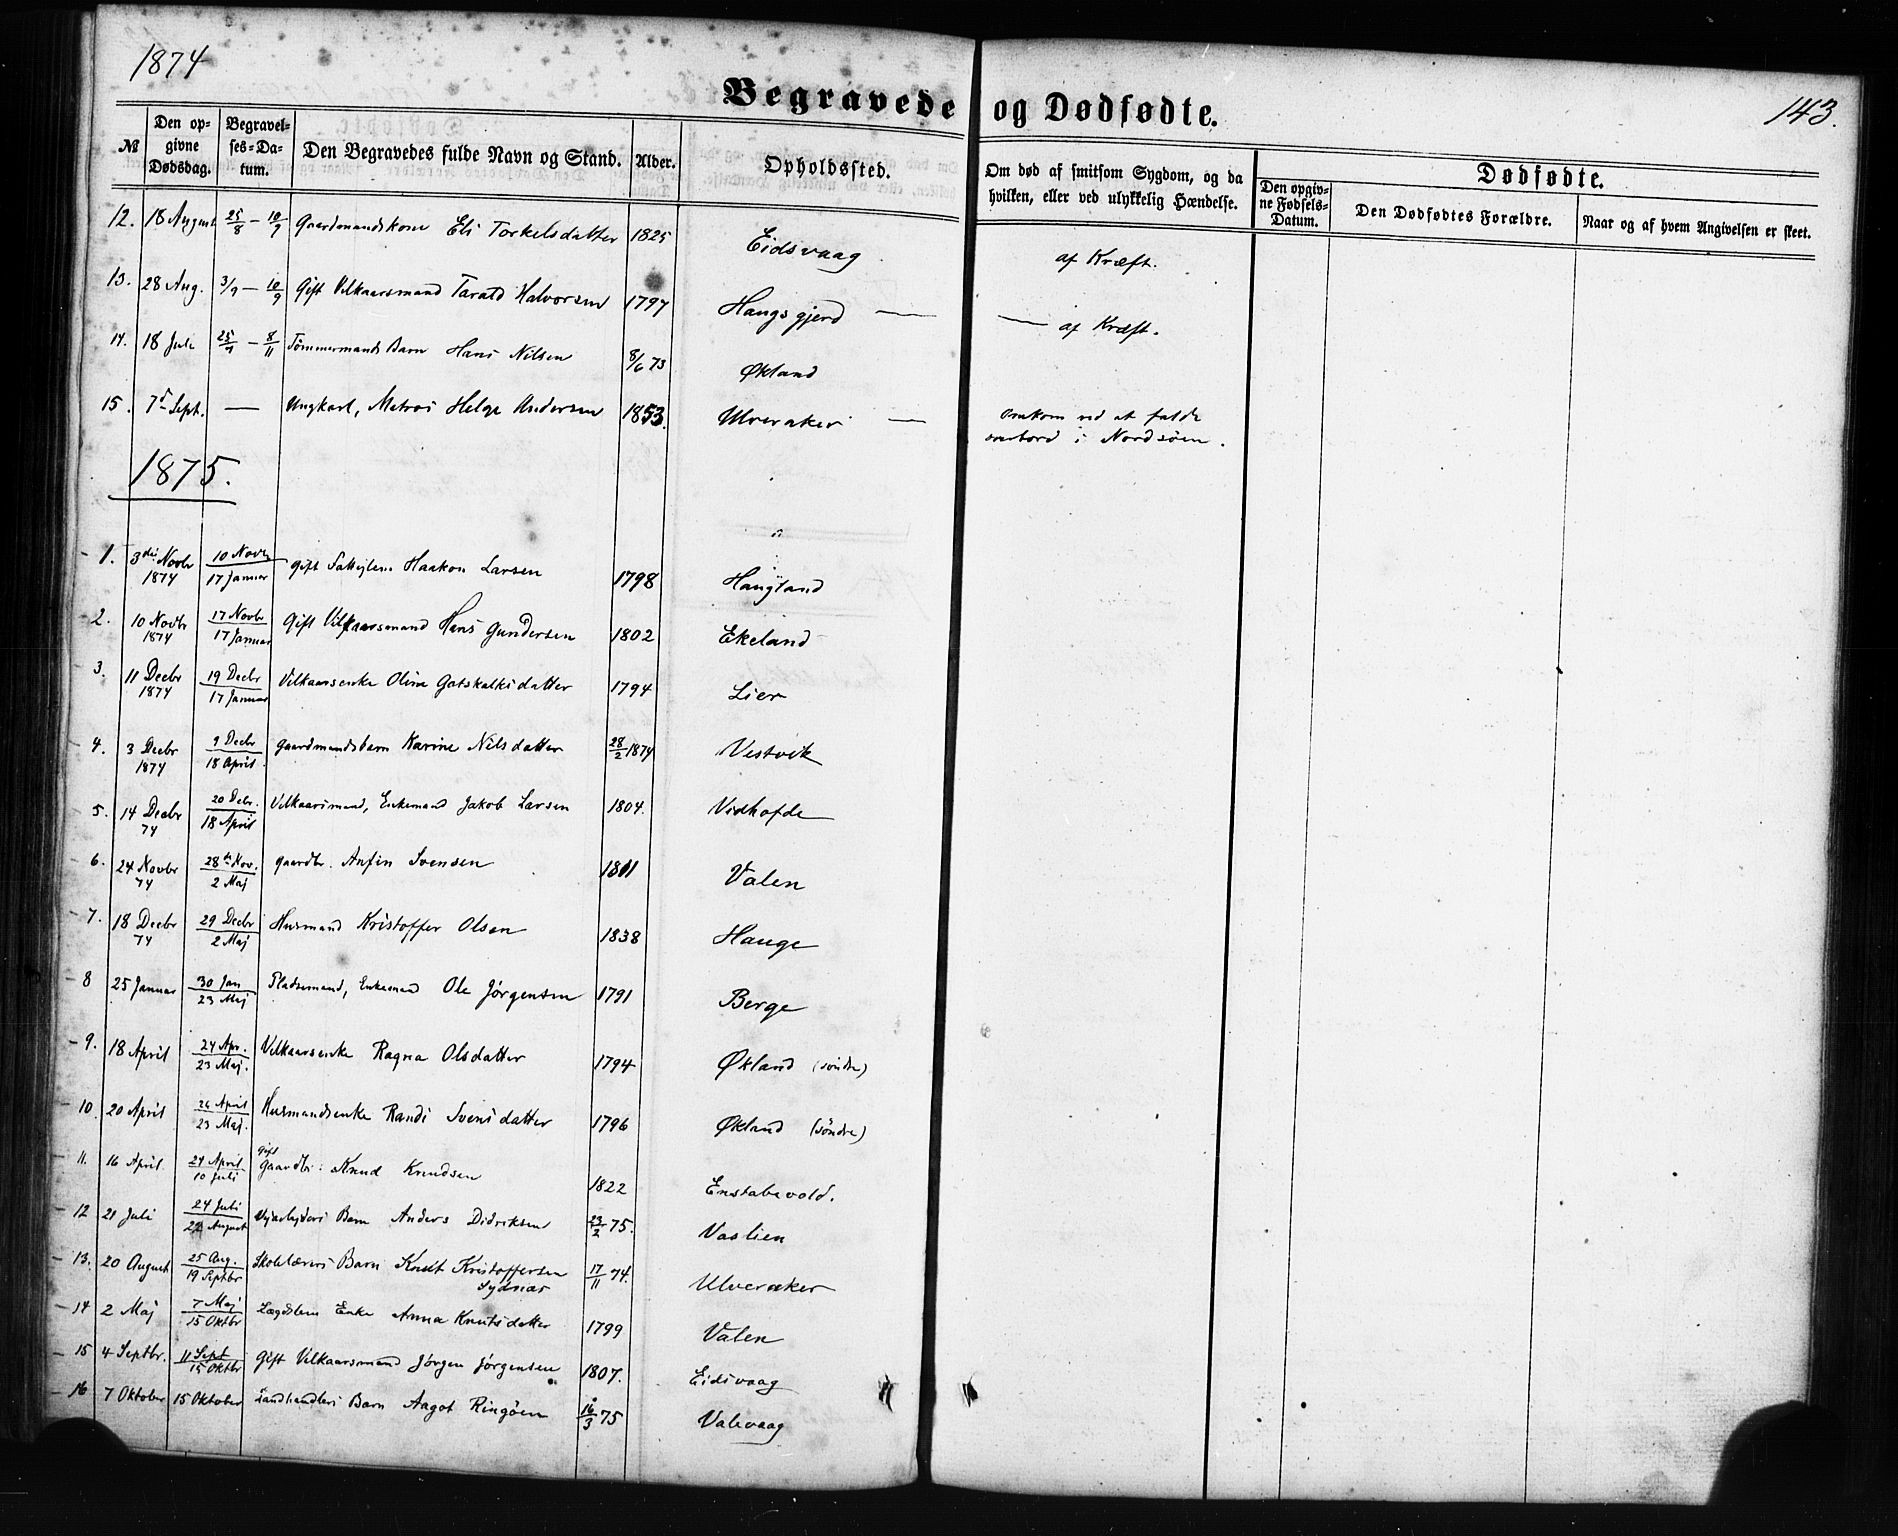 1874
143.
Begravede og Dødfødte.
№ Den opgivne Dødsdag. Begravelses-Datum. Den Begravedes fulde Navn og Stand. Alder. Opholdssted. Om død af smitsom Sygdom, og da hvilken, eller ved ulykkelig Hændelse. Dødfødte. Den opgivne Fødsels-Datum. Den Dødfødtes Forældre. Naar og af hvem Angivelsen er skeet.
12. 18 August 25/8 – 10/9 Gaardmandskone Eli Torkelsdatter 1825 Eidsvaag af Kræft.
13. 28 Aug. 3/9 – 10/9 Gift Vilkaarsmand Tarald Halvorsen 1797 Haugsgjerd — — af Kræft.
14. 18 Juli 25/7 – 8/11 Tømmermands Barn Hans Nilsen 8/6 73 Økland
15. 7de Sept. — Ungkarl, Matros Helge Andersen 1853. Ulveraker — Omkom ved at falde
overbord i Nordsøen.
1875.
1. 3die Novbr 1874 10 Novbr / 17 Januar Gift Haakon Larsen 1798 Haugland
2. 10 Novbr 1874 17 Novbr / 17 Januar Gift Vilkaarsmand Hans Gundersen 1802 Ekeland
3. 11 Decbr 1874 19 Decbr / 17 Januar Vilkaarsenke Oline Gotskalksdatter 1794 Lier
4. 3 Decbr 1874 9 Decbr / 18 April Gaardmandsbarn Karine Nilsdatter 28/2 1874 Vestvik
5. 14 Decbr 74 20 Debr. / 18 April Vilkaarsmand, Enkemand Jakob Larsen 1804. Vidhofde
6. 24 Novbr 74 28de Nov. / 2 Maj Gaardbr. Anfin Svensen 1811 Valen
7. 18 Decbr 74 29 Decbr / 2 Maj Husmand Kristoffer Olsen 1838 Hauge
8 25 Januar 30 Jan / 23 Maj Pladsemand, Enkemand Ole Jørgensen 1791 Berge
9. 18 April 24 Apr. / 23 Maj. Vilkaarsenke Ragna Olsdatter 1794 Økland (søndre)
10. 20 April 24 April / 23 Maj. Husmandsenke Randi Svensdatter 1796 Økland (søndre)
11. 16 April. 24 April / 10 Juli Gift Gaardbr: Knud Knudsen 1822 Enstabevold.
12 21 Juli 24 Juli / 22 August Barn Anders Didriksen 23/2 75. Vaslien
13. 20 August 25 Aug. / 19 Septbr Skolelærers Barn Knut Kristoffersen Sydnæs 17/11 74. Ulveraker
14 2 Maj 7 Maj / 15 Oktbr Lægdslem Enke Anna Knutsdatter 1799 Valen
15 4 Septbr. 11 Sept / 15 Oktbr Gift Vilkaarsmand Jørgen Jørgensen 1807. Eidsvaag
16 7 Oktober 15 Oktober Landhandlers Barn Aagot Ringøen 16/3 75 Valevaag